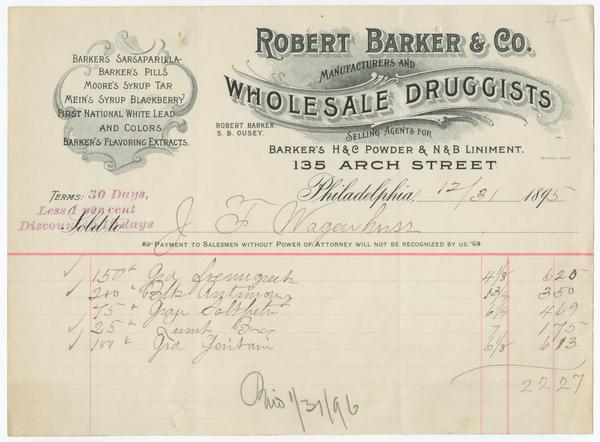 4-
Robert Barker & Co.
Manufacturers and
Wholesale Druggists
Robert Barker.
S. B. Ousey.
Selling Agents for
Barker's H&C Powder & N&B Liniment.
135 Arch Street
Barker's Sarsaparilla
Barker's Pills
Moore's Syrup Tar
Mein's Syrup Blackberry
First National White Lead
and Colors
Barker's Flavoring Extracts.
Philadelphia, 12/31 1895
Terms: 30 Days,
Less 1 per cent
Discount days
Sold to J F
Payment to Salesmen without Power of Attorney will not be recognized by us.
150 # Grd Foenugreek 4 1/8 6 20
200 " Blk Antimony 3 50
75 " Gran Saltpetre 6 1/4 4 69
25 " 7 1 75
100 " Grd Gentian 6 1/8 6 13
22 27
1/31/96